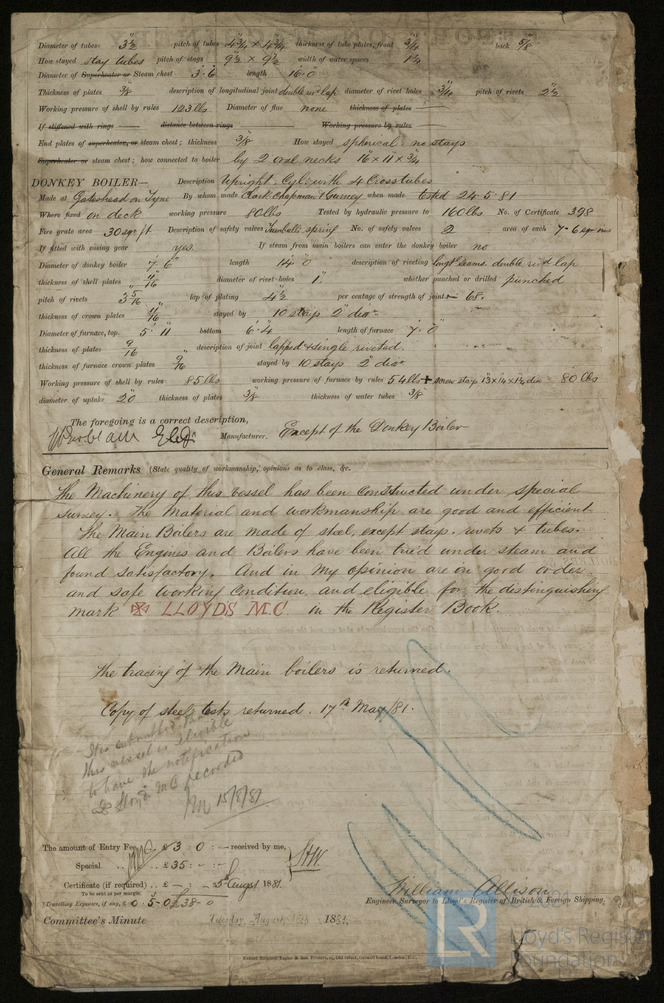 Diameter of tubes 3½ pitch of tubes 4¾ × 4¾ thickness of tube plates, front ¾ back ⅝
How stayed stay tubes pitch of stays 9½ × 9½ width of water spaces
Diameter of Superheater or Steam chest 3·6 length 16·0
Thickness of plates ⅜ description of longitudinal joint double riv lap diameter of rivet holes ¾ pitch of rivets 2½
Working pressure of shell by rules 123 lbs Diameter of flue none thickness of plates
If stiffened with rings distance between rings Working pressure by rules
End plates of superheater, or steam chest; thickness ⅜ How stayed spherical no stays
Superheater or steam chest; how connected to boiler by 2 oval necks 16 × 11 × ¾
DONKEY BOILER— Description Upright. Cyl: with 4 Cross tubes
Made at Gateshead on Tyne By whom made Clark Chapman & Gurney when made tested 24·5·81
Where fixed on deck working pressure 80 lbs Tested by hydraulic pressure to 160 lbs No. of Certificate 398
Fire grate area 30 sqr ft Description of safety valves Turnbulls spring No. of safety valves 2 area of each 7·6 sqr ins
If fitted with easing gear yes. If steam from main boilers can enter the donkey boiler no
Diameter of donkey boiler 7·6 length 14·0 description of riveting longl seams double rivd lap
thickness of shell plates 7/16 diameter of rivet holes 1 whether punched or drilled punched
pitch of rivets 3 5/16 lap of plating 4½ per centage of strength of joint 68.
thickness of crown plates stayed by 10 stays 2 diar
Diameter of furnace, top 5·11 bottom 6·4 length of furnace 7·0
thickness of plates 9/16 description of joint lapped & single riveted.
thickness of furnace crown plates 9/16 stayed by 10 stays 2 diar
Working pressure of shell by rules 85 lbs working pressure of furnace by rules 54 lbs + screw stays 13 × 14 × 1½ dia = 80 lbs
diameter of uptake 20 thickness of plates ⅜ thickness of water tubes ⅜
The foregoing is a correct description,
Manufacturer. Except of the Donkey Boiler
General Remarks (State quality of workmanship, opinions as to class, &c.
The Machinery of this vessel has been constructed under special
survey. The Material and workmanship are good and efficient
The Main Boilers are made of steel, except stays, rivets & tubes.
All the Engines and Boilers have been tried under steam and
found satisfactory. And in my opinion are in good order
and safe working condition, and eligible for the distinguishing
mark LLOYDS M.C in the Register Book.
The tracing of the Main boilers is returned.
Copy of steel tests returned. 17th May/81.
It is submitted that
this vessel is eligible
to have the notification
Lloyds M C recorded
15/8/81
The amount of Entry Fee £ 3 0 : — received by me,
Special .. £ 35 : - : -
Certificate (if required) .. £ - — 5th Augst 1881
To be sent as per margin.
(Travelling Expenses, if any, £ 0·5·0 £38-0
William Allison
Engineer Surveyor to Lloyd's Register of British & Foreign Shipping.
Committee's Minute Tuesday, August 1881.
LR
Lloyd's Register
Foundation